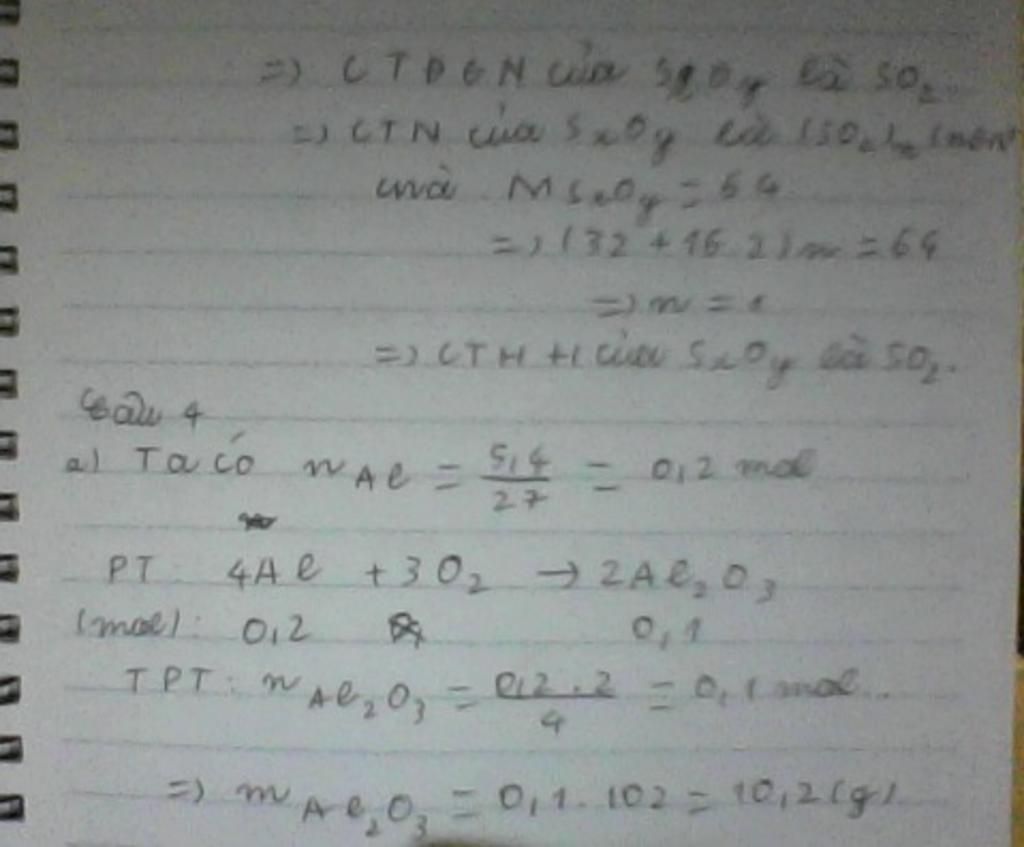 =) CTĐGN của SxOy là SO₂.
=) CTN của SxOy là (SO₂)n
mà MSxOy = 64
=) (32 + 16.2)n = 64
=) n = 1
=) CTHH của SxOy là SO₂.
Câu 4
a) Ta có nAl = 5,4/27 = 0,2 mol
PT: 4Al + 3O₂ → 2Al₂O₃
(mol): 0,2 0,1
TPT: nAl₂O₃ = 0,2.2/4 = 0,1 mol.
=) mAl₂O₃ = 0,1.102 = 10,2(g)